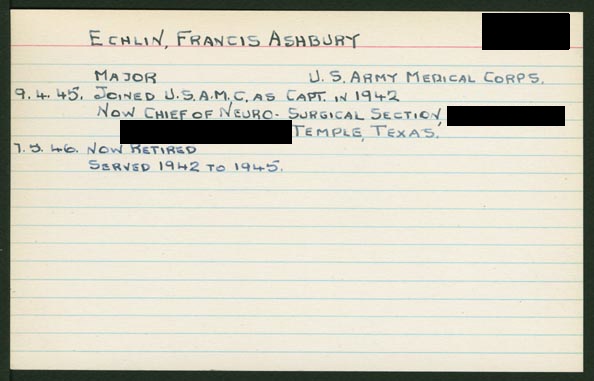 ECHLIN, FRANCIS ASHBURY
MAJOR U.S. ARMY MEDICAL CORPS.
9.4.45. JOINED U.S.A.M.C. AS CAPT. IN 1942
NOW CHIEF OF NEURO-SURGICAL SECTION,
TEMPLE, TEXAS.
7.5.46. NOW RETIRED
SERVED 1942 TO 1945.